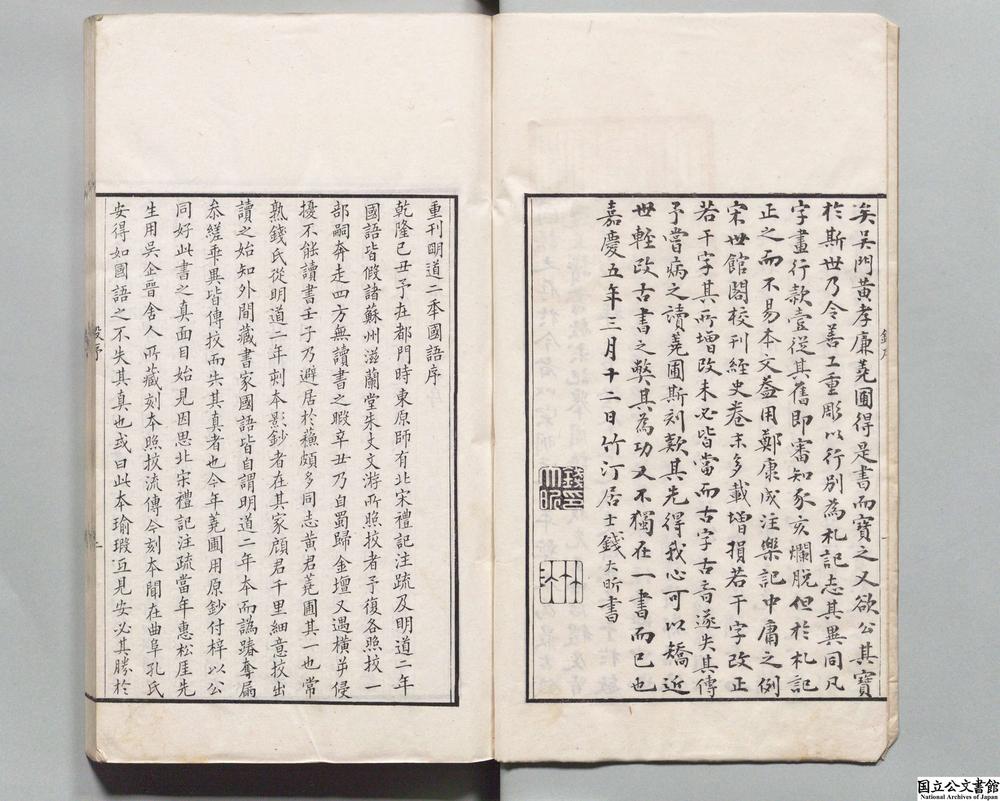 矣吴門黄孝廉蕘圃得是書而寶之又欲公其寶
於斯世乃令善工重彫以行別為札記志其異同凡
字畫行款壹從其舊即審知豕亥爛脱但於札記
正之而不易本文葢用鄭康成注樂記中庸之例
宋世館閣校刊經史卷末多載增損若干字改正
若干字其所增改未必皆當而古字古音遂失其傳
予嘗病之讀蕘圃斯刻歎其先得我心可以矯近
世輕改古書之獘其為功又不獨在一書而已也
嘉慶五年三月十二日竹汀居士錢大昕書
錢印大昕
竹汀
重刊明道二年國語序
乾隆己丑予在都門時東原師有北宋禮記注疏及明道二年
國語皆假諸蘇州滋蘭堂朱丈文游所照挍者予復各照挍一
部嗣奔走四方無讀書之暇辛丑乃自蜀歸金壇又遇橫逆侵
擾不能讀書壬子乃避居於蘓頗多同志黄君蕘圃其一也常
熟錢氏從明道二年刺本影鈔者在其家顧君千里細意挍出
讀之始知外間藏書家國語皆自謂明道二年本而譌踳奪扁
叅縒乖異皆傳挍而失其真者也今年蕘圃用原鈔付梓以公
同好此書之真面目始見因思北宋禮記注疏當年惠松厓先
生用吴企晉舍人所藏刻本照挍流傳今刻本聞在曲阜孔氏
安得如國語之不失其真也或曰此本瑜瑕互見安必其勝於
段序
一
国立公文書館
National Archives of Japan